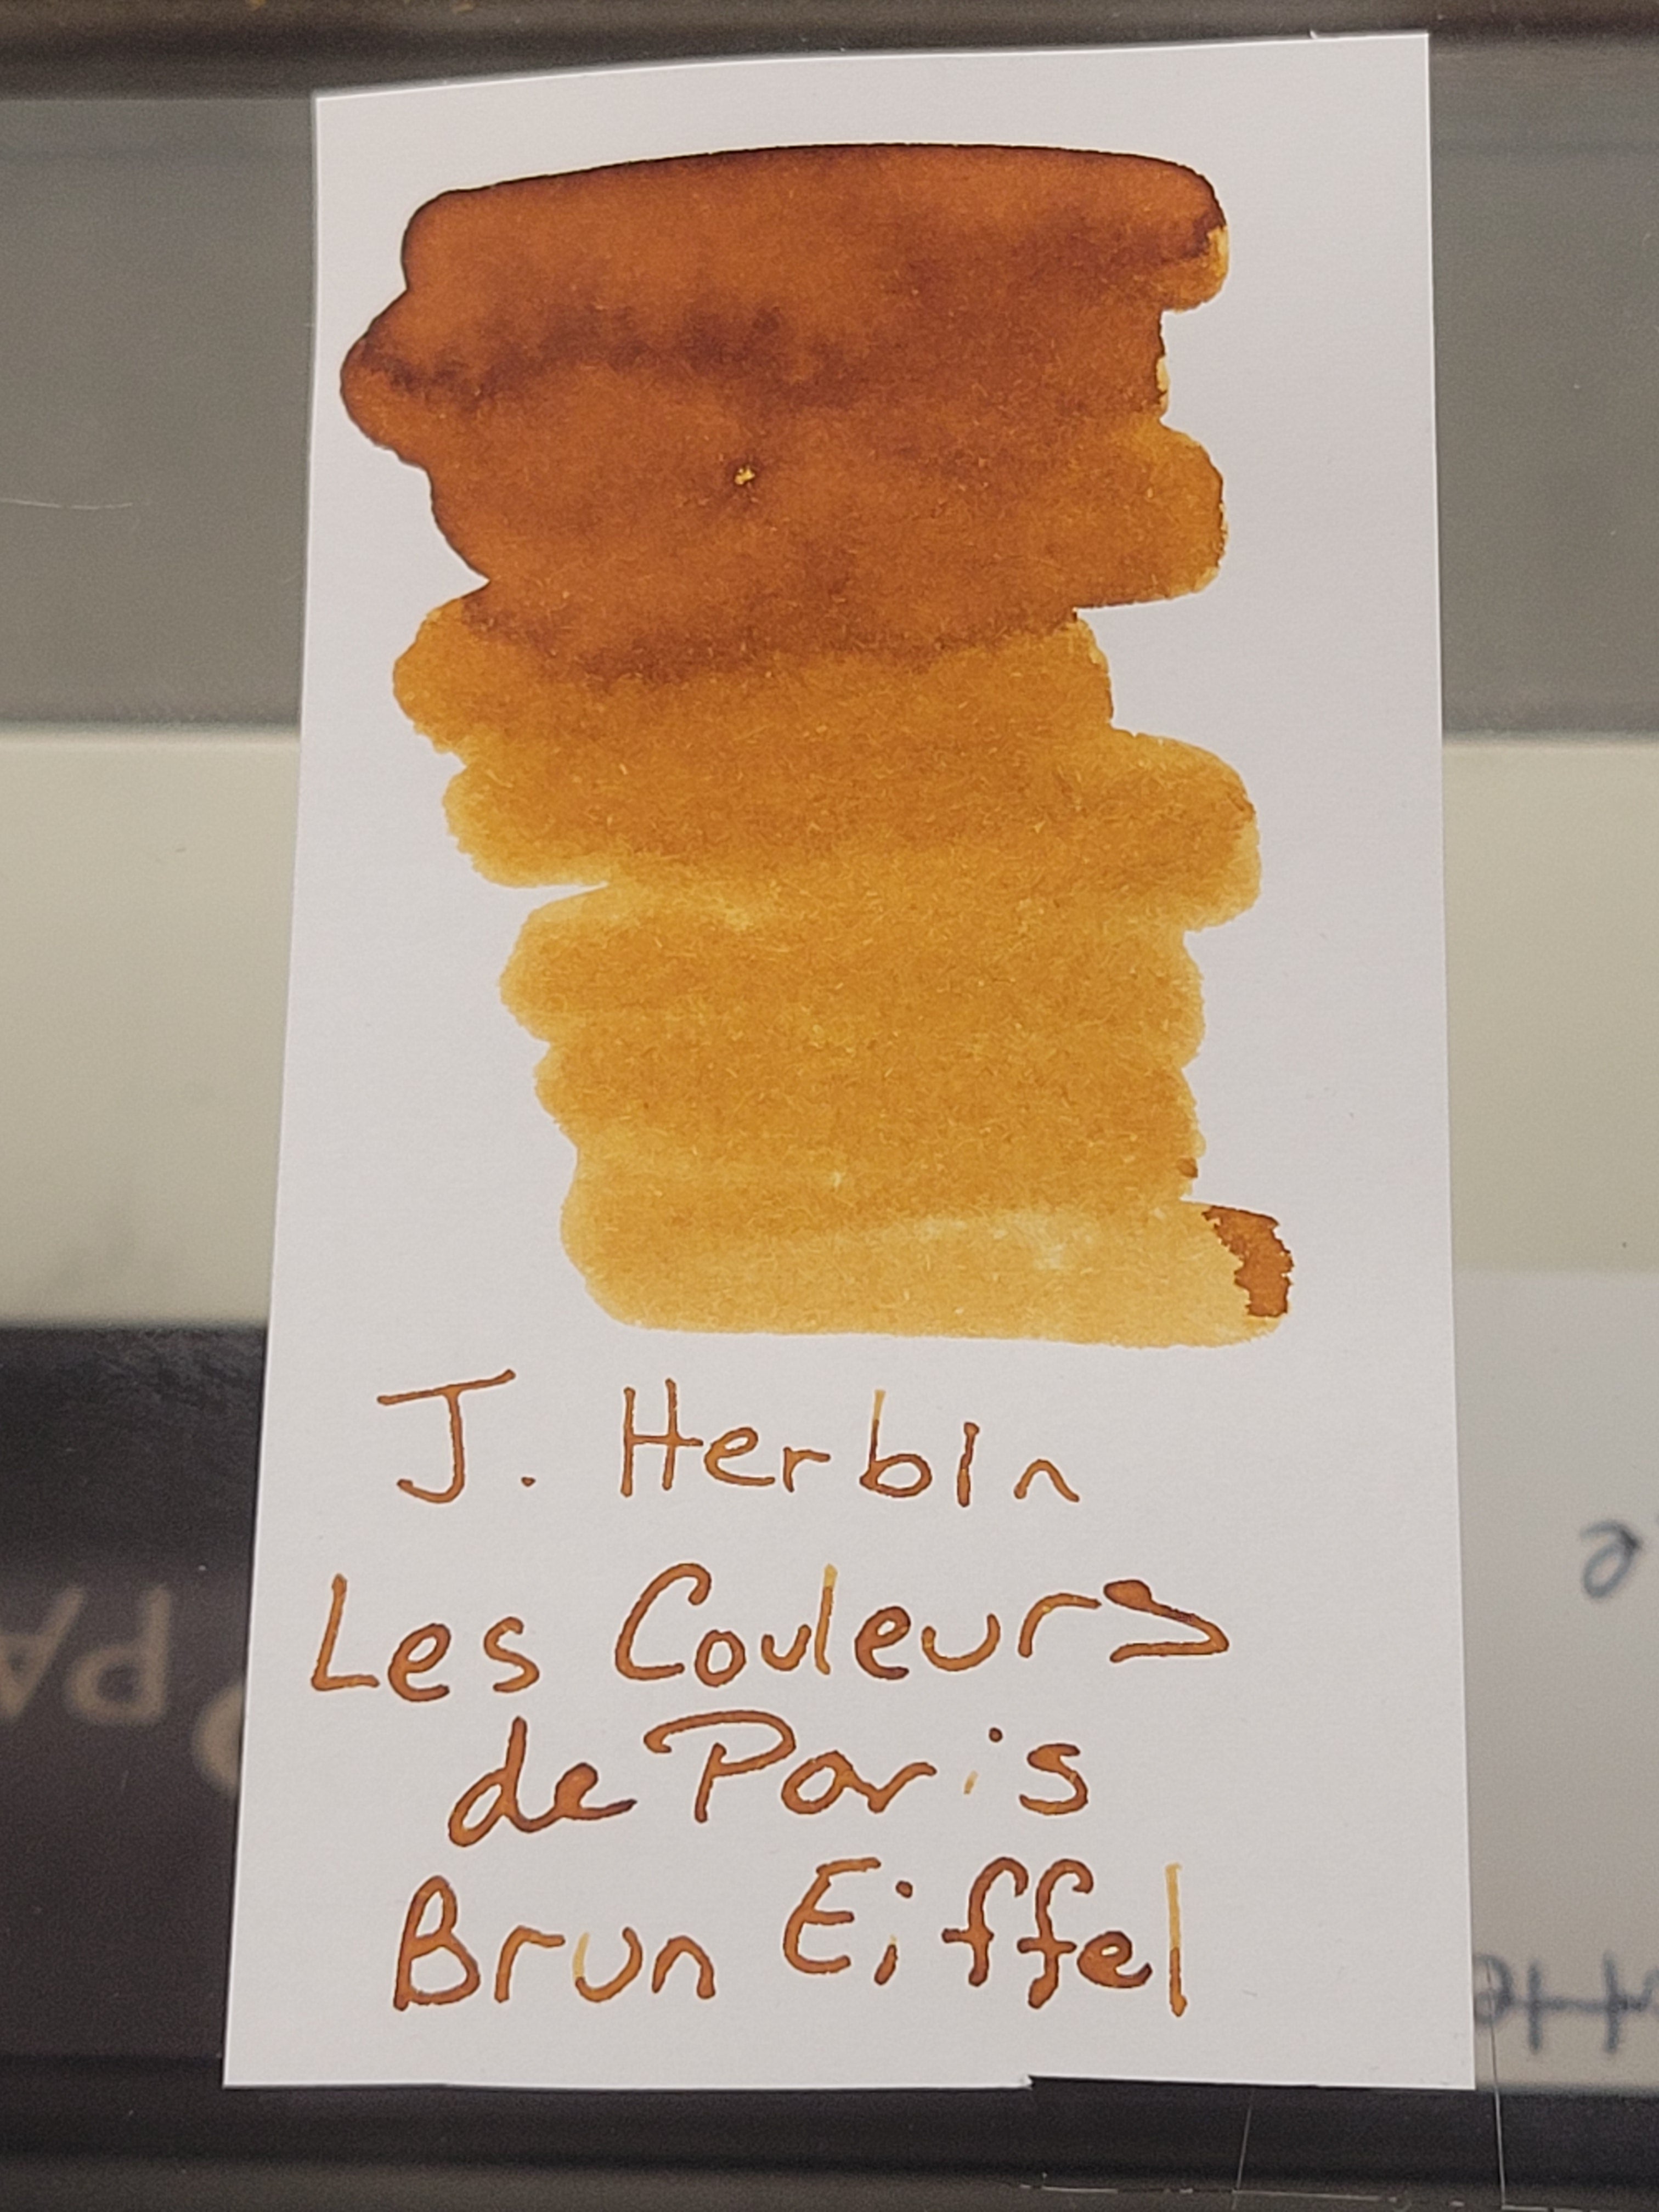 J. Herbin
Les Couleurs
de Paris
Brun Eiffel
PA